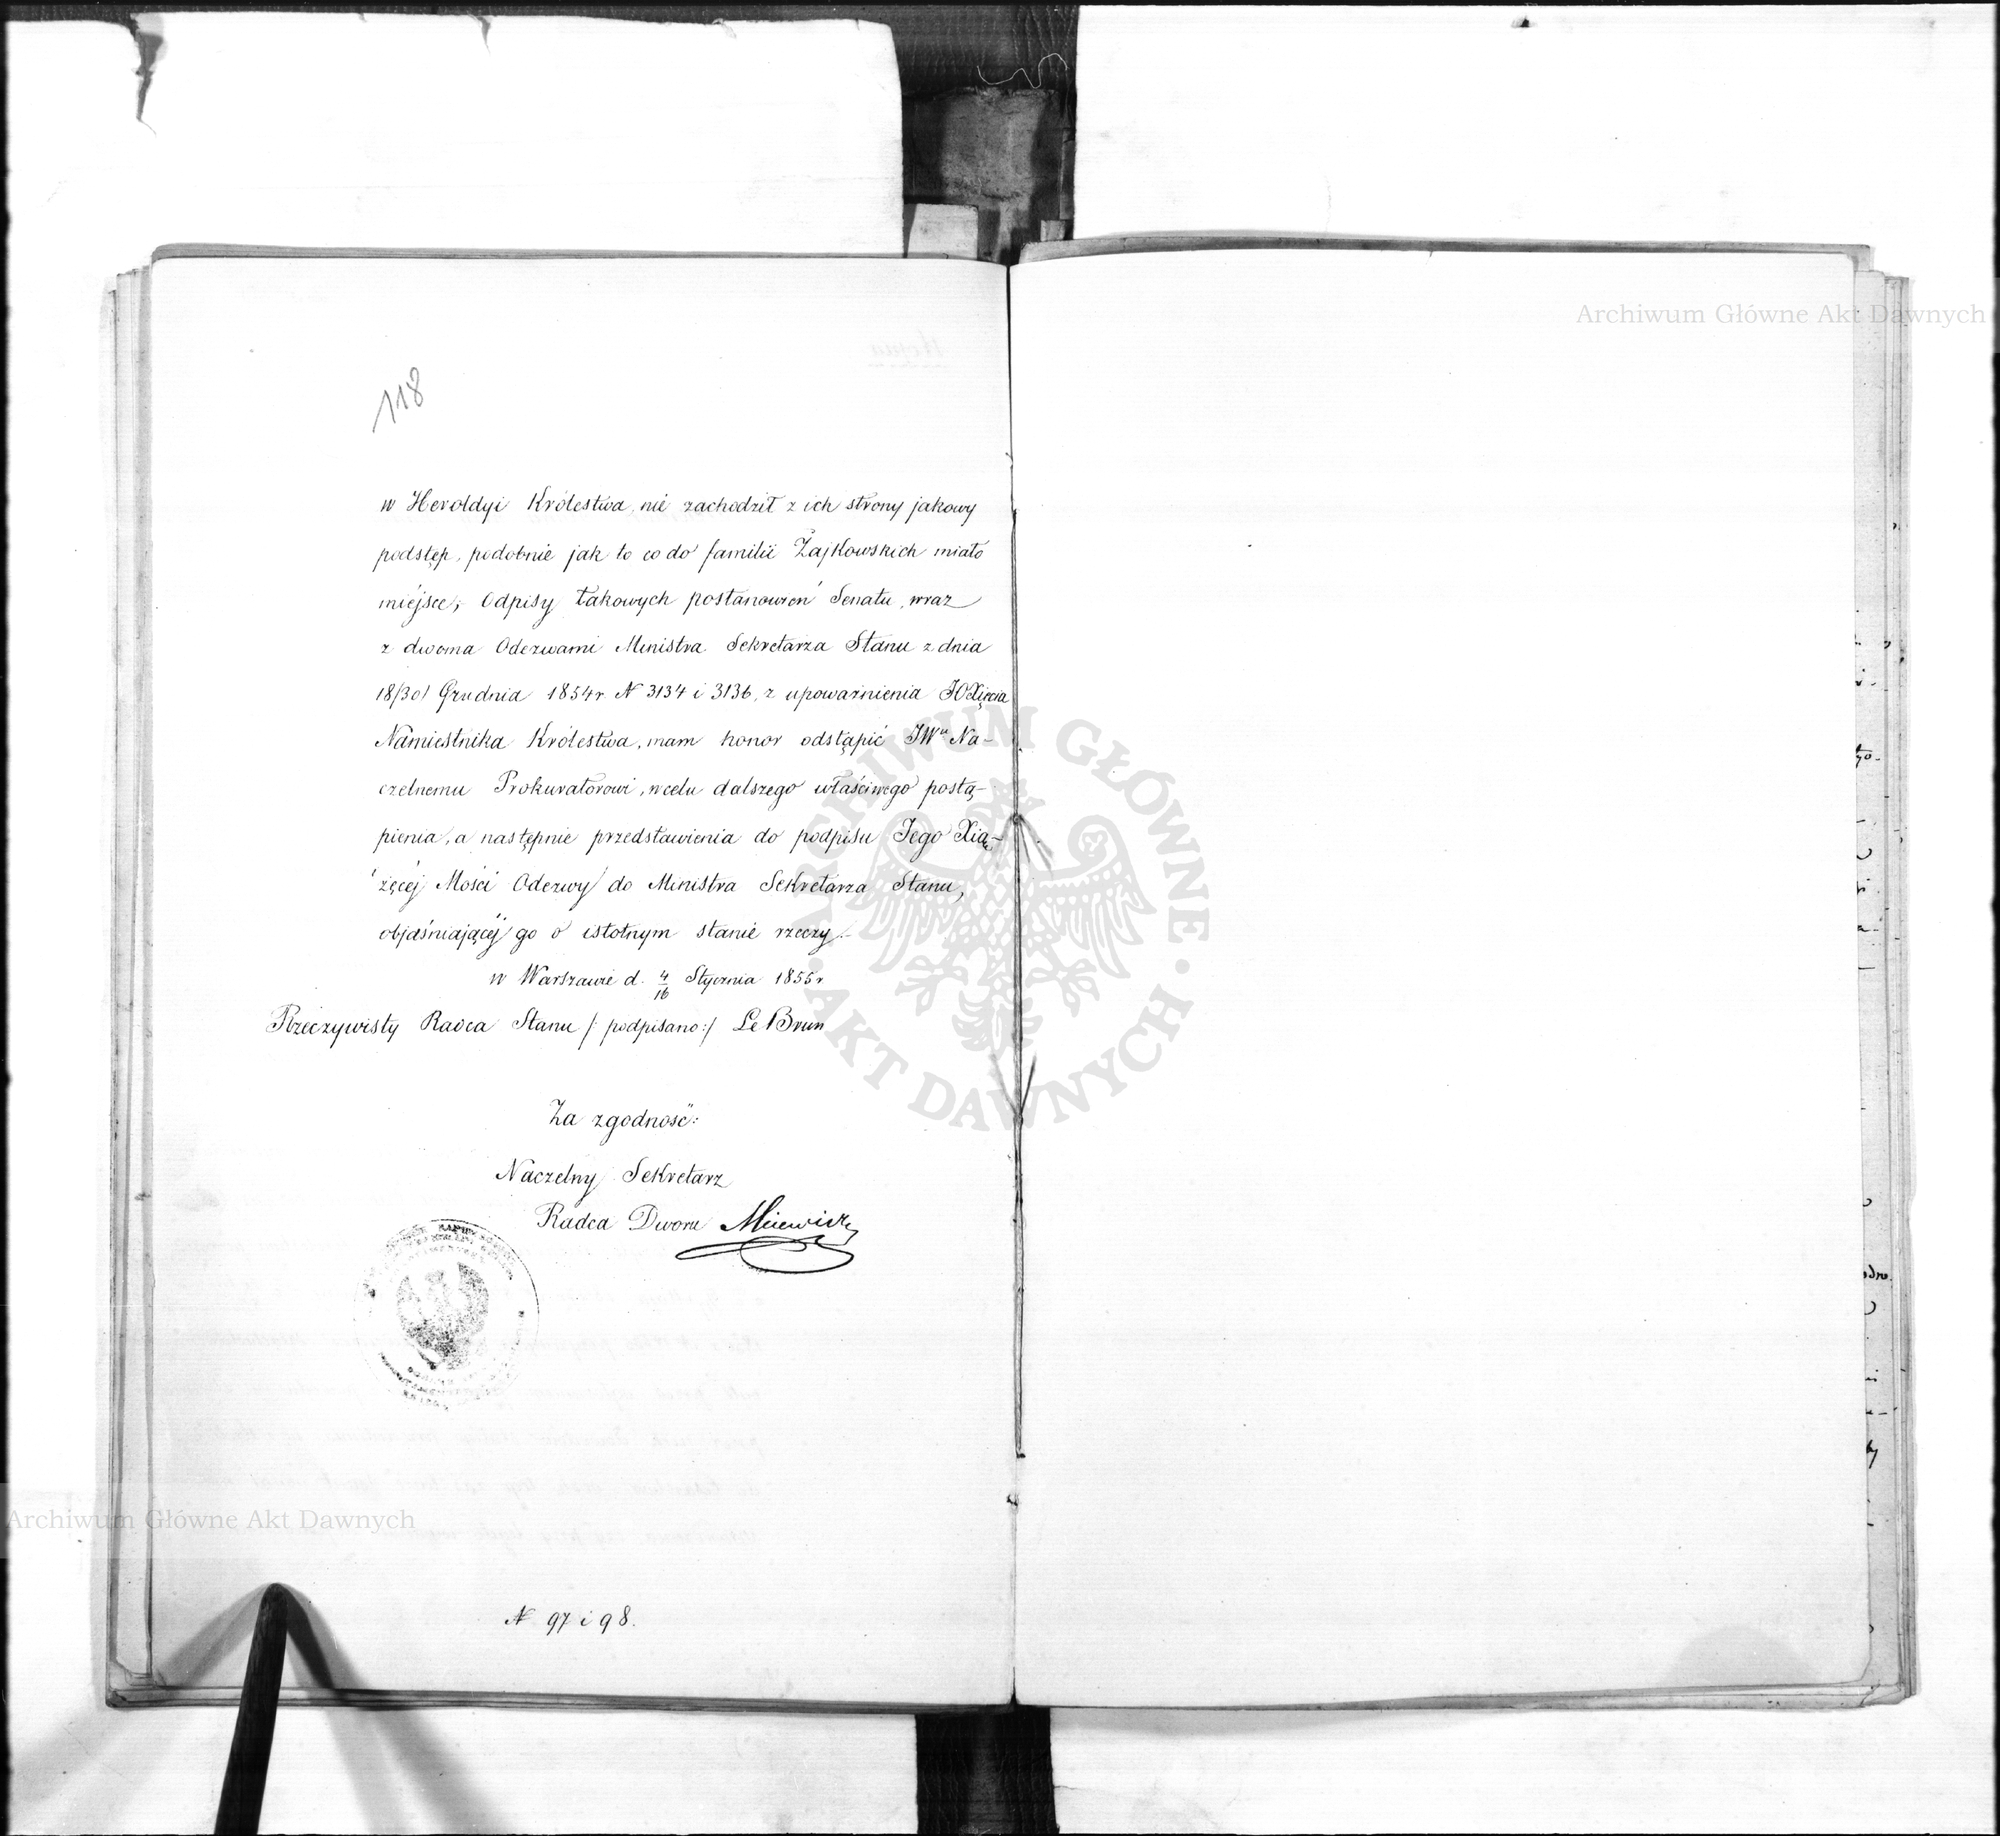 118
w Heroldyi Królestwa, nie zachodził z ich strony jakowy
podstęp, podobnie jak to co do familii Zajkowskich miało
miejsce; Odpisy takowych postanowień Senatu, wraz
z dwoma Odezwami Ministra Sekretarza Stanu z dnia
18/30/ Grudnia 1854 r. N 3134 i 3136, z upoważnienia JO Xięcia
Namiestnika Królestwa, mam honor odstąpić JWu Na-
czelnemu Prokuratorowi, w celu dalszego właściwego postą-
pienia, a następnie przedstawienia do podpisu Jego Xią-
żęcej Mości Odezwy do Ministra Sekretarza Stanu,
objaśniającej go o istotnym stanie rzeczy.
w Warszawie d. 4/16 Stycznia 1855 r.
Rzeczywisty Radca Stanu /: podpisano :/ Le Brun
Za zgodność:
Naczelny Sekretarz
Radca Dworu
N 97 i 98.
Archiwum Główne Akt Dawnych
Archiwum Główne Akt Dawnych
ARCHIWUM GŁÓWNE
AKT DAWNYCH